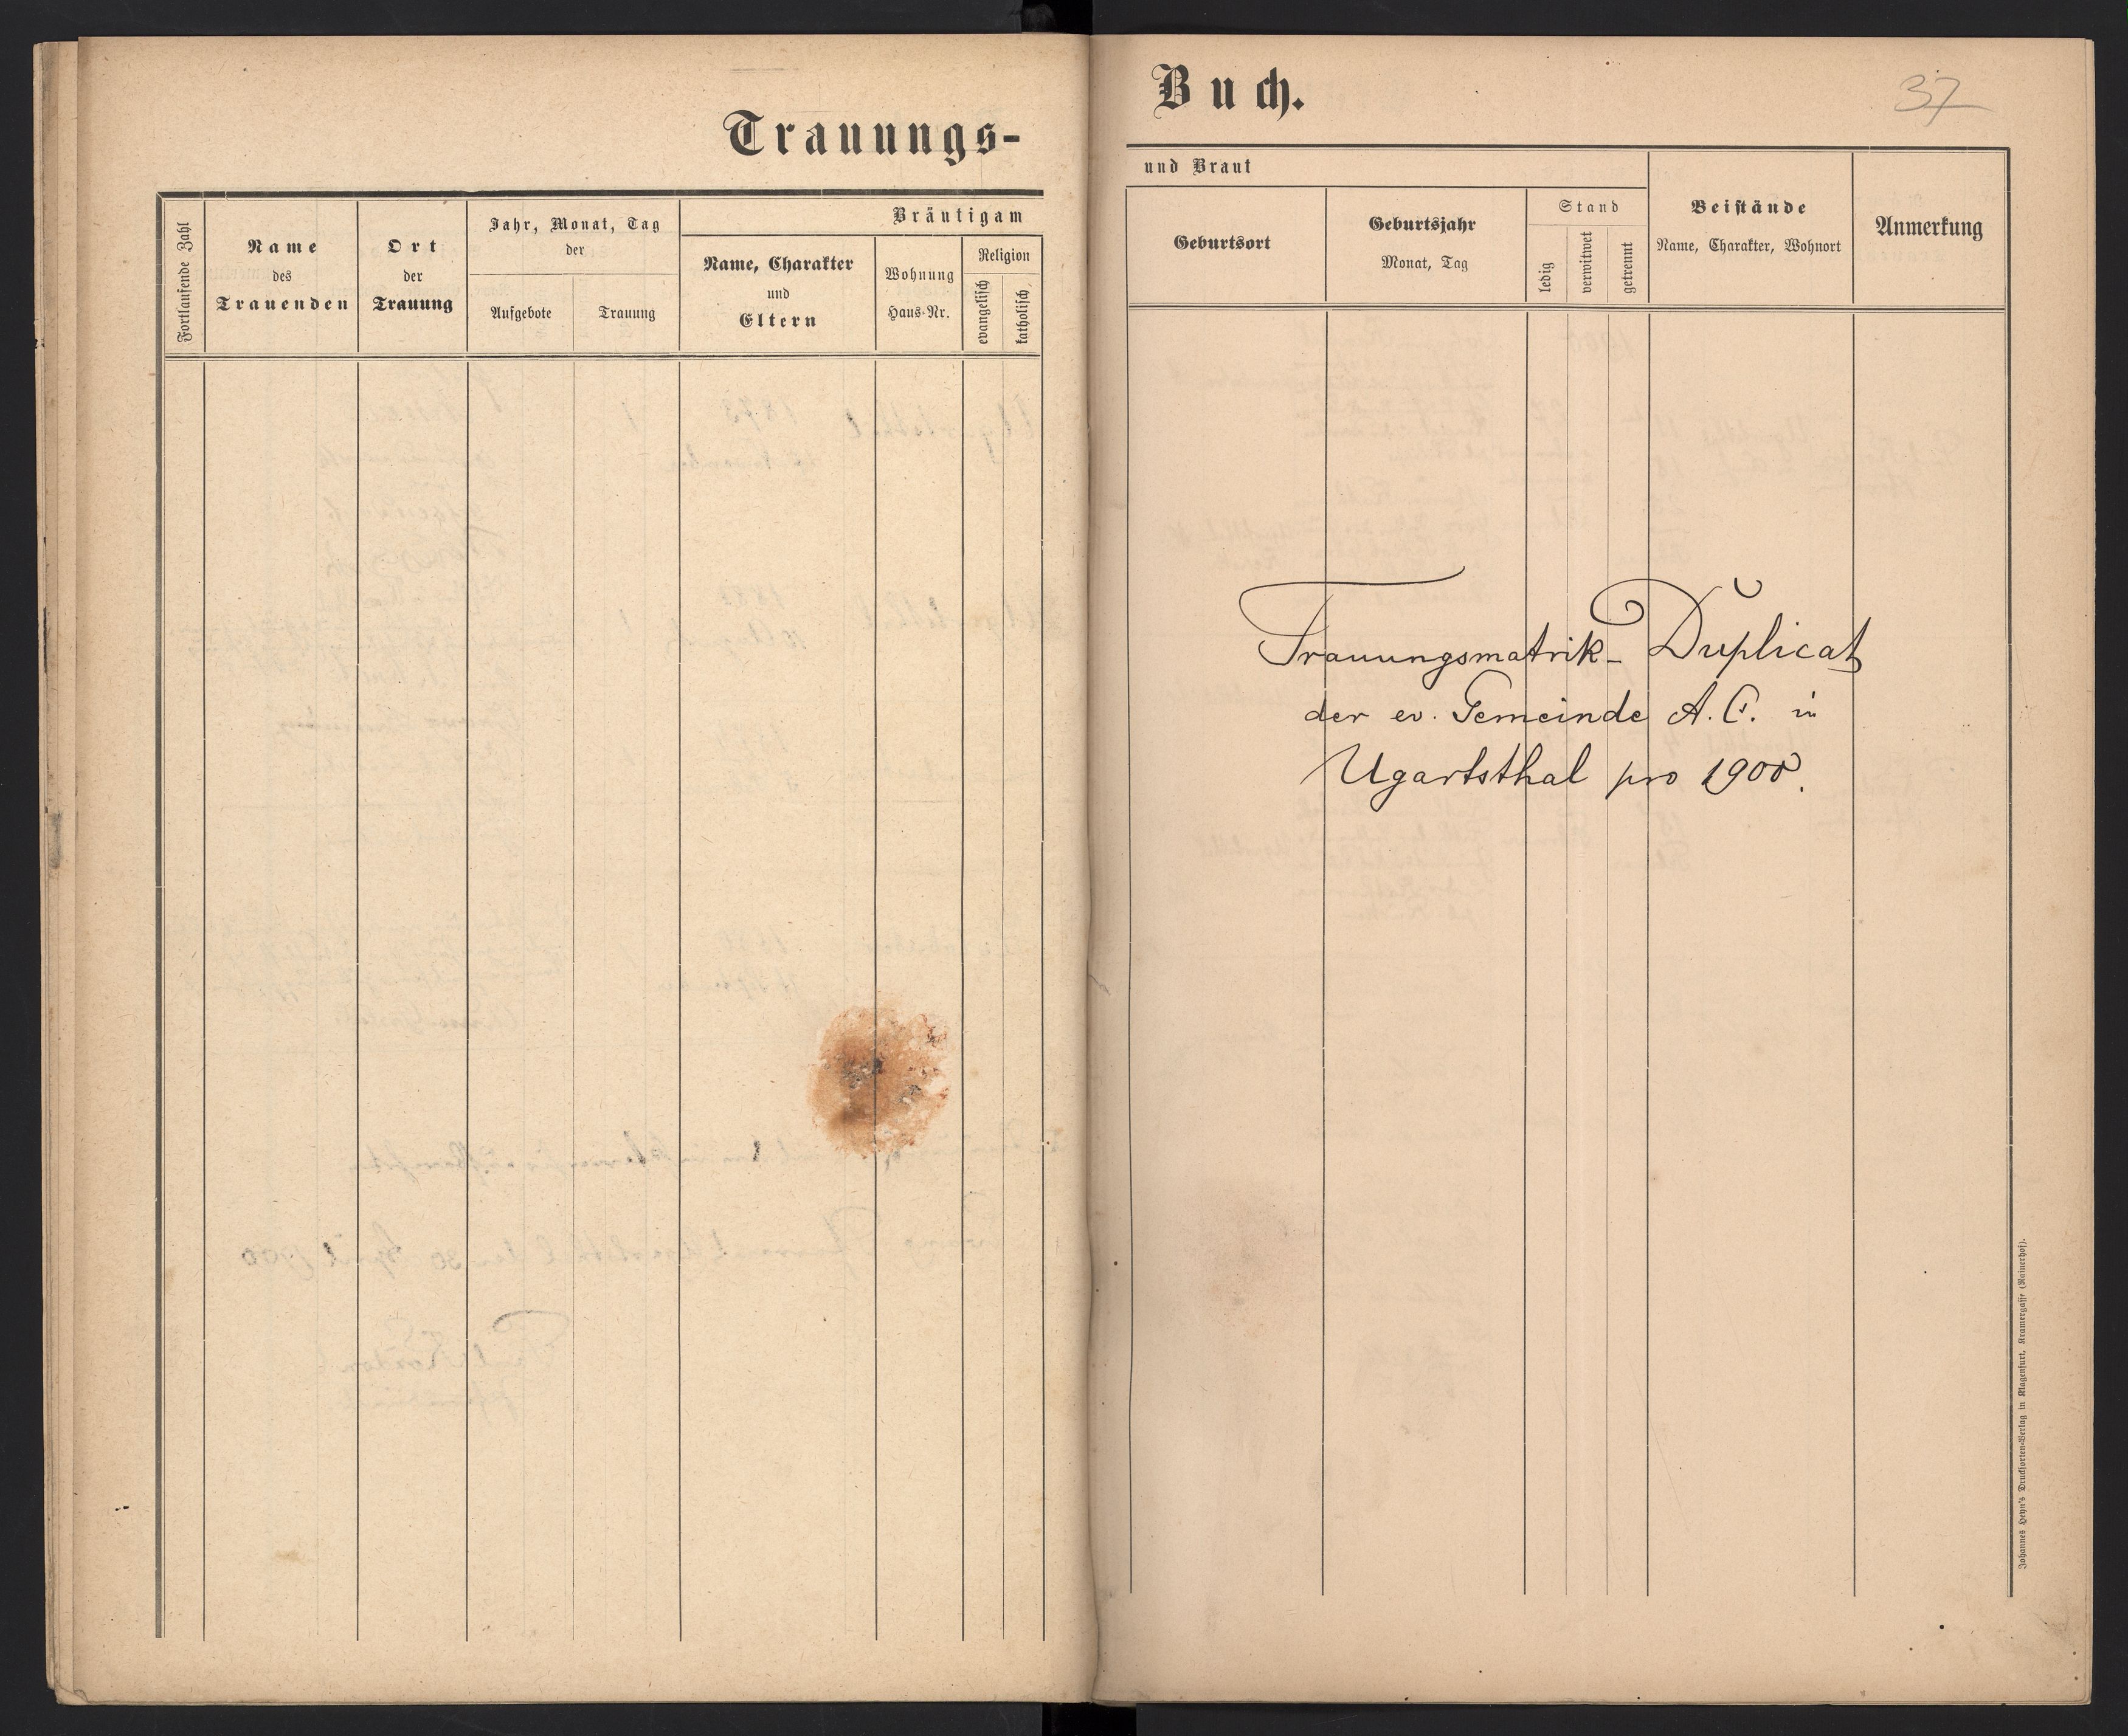 Trauungs-
Fortlaufende Zahl
Name
des
Trauenden
Ort
der
Trauung
Jahr, Monat, Tag
der
Aufgebote
Trauung
Bräutigam
Name, Charakter
und
Eltern
Wohnung
Haus-Nr.
Religion
evangelisch
katholisch
Buch.
37
und Braut
Geburtsort
Geburtsjahr
Monat, Tag
Stand
ledig
verwitwet
getrennt
Beistände
Name, Charakter, Wohnort
Anmerkung
Trauungsmatrik- Duplicat
der ev. Gemeinde A. C. in
Ugartsthal pro 1900.
Johannes Heyn's Drucksorten-Verlag in Klagenfurt, Kramergasse (Rainerhof).